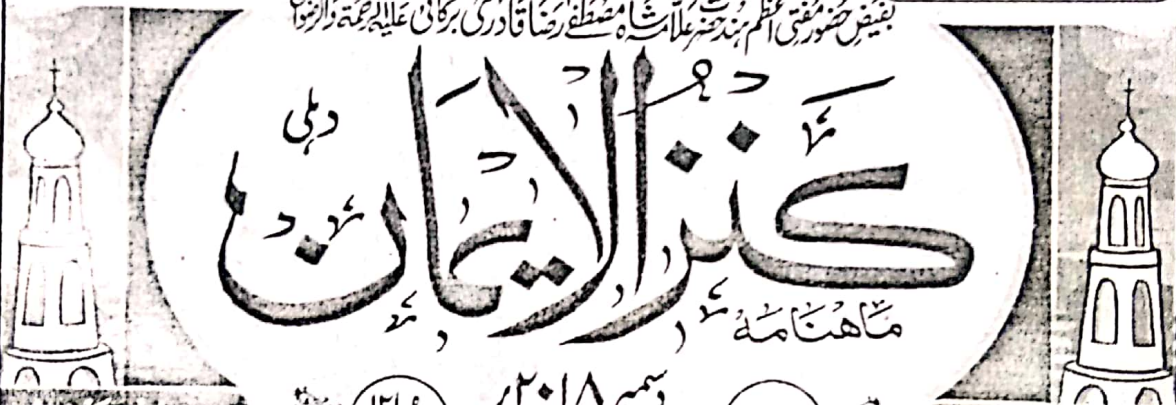 بفیض حضور مفتی اعظم ہند حضرت علامہ شاہ مصطفےٰ رضا قادری برکاتی علیہ الرحمۃ والرضوان
دہلی
کنزالایمان
ماھنامہ
دسمبر ۲۰۱۸ء